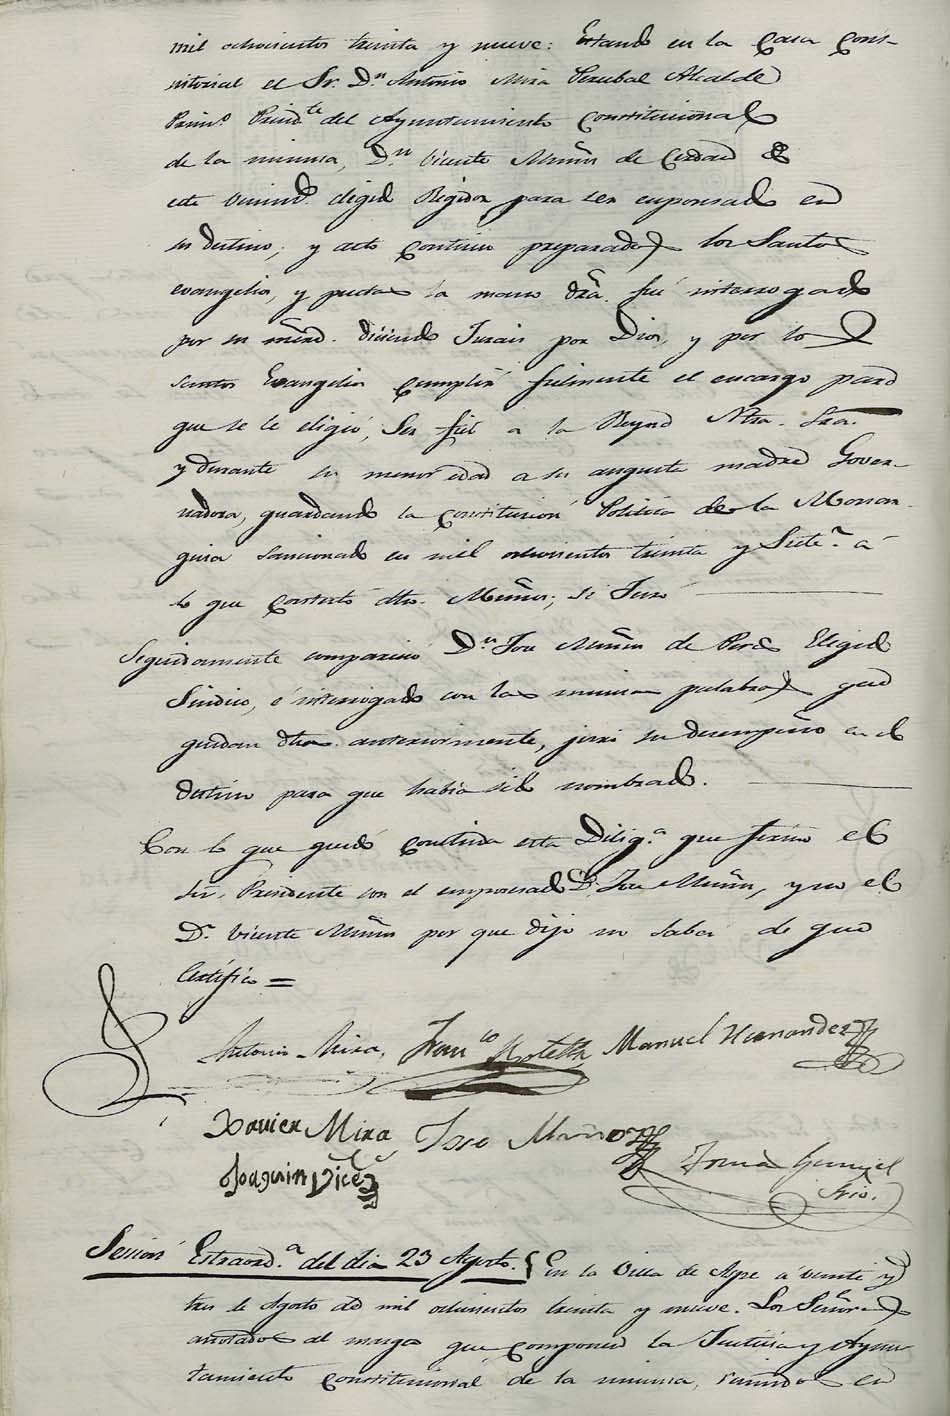 mil ochocientos treinta y nueve: Estando en la Casa Cons-
sitorial el Sr. Dn. Antonio Mira Alcalde
Primo. Presidte del Ayuntamiento Constitucional
de la misma, Dn. Vicente Muñoz de
este elegido Regidor para ser enposesado en
su destino, y acto continuo preparados los Santos
evangelios, y puesta la mano dra. fué interrogado
por su mrd. diciendo Jurais por Dios, y por los
Santos Evangelios cumplir fielmente el encargo para
que se le eligió, Ser fiel a la Reyna Ntra. Sra.
y durante su menor edad a su augusta madre Gover-
nadora, guardando la Constitusión Politica de la Monar-
quia sancionada en mil ochocientos treinta y Siete. á
lo que contestó dho. Muñoz; Si Juro
Seguidamente comparecio Dn. José Muñoz de Elegido
Sindico, é interrogado con las mismas palabras que
quedan dhas. anteriormente, juró su desempeño en el
destino para que habia sido nombrado.
Con lo que quedó concluida esta Diliga. que firmó el
Sr. Presidente con el emposesado D. José Muñoz, y no el
D. Vicente Muñoz por que dijo no saber de que
Certifico =
Antonio Mira, Franco Manuel Hernandez
Xavier Mira José Muñoz
Joaquin Tomás
Srio.
Sesion Estraorda. del dia 23 Agosto. En la Villa de Aspe á veinte y
tres de Agosto de mil ochocientos treinta y nueve. Los Señores
anotados al margen que componen la Justicia y Ayun
tamiento constitucional de la misma, reunidos en